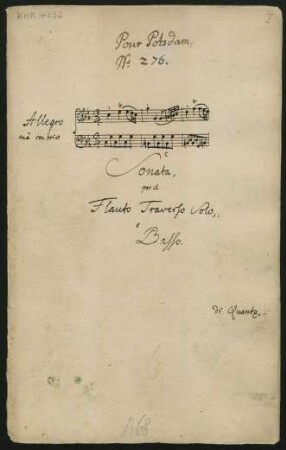 KHM 4232
Pour Potsdam,
No. 276.
Allegro
mà con brio
Sonata,
per il
Flauto Traverso Solo,
è
Basso.
di Quantz.
1368